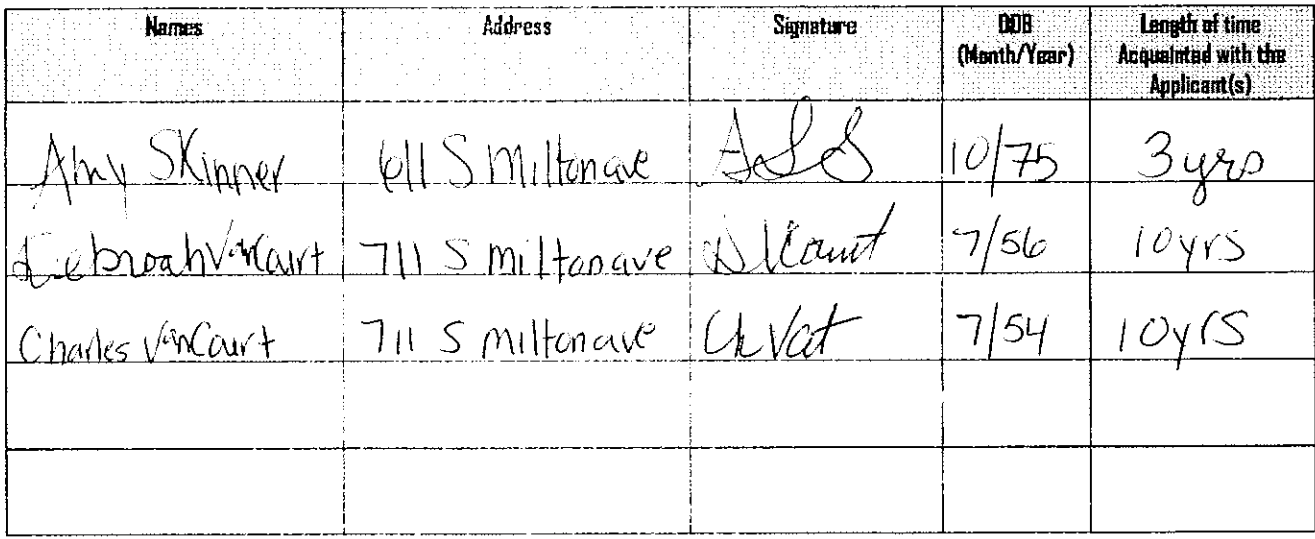 Names Address Signature DOB (Month/Year) Length of time Acquainted with the Applicant(s)
Amy Skinner 611 S Milton ave ASS 10/75 3 yrs
Debroah VanCourt 711 S Milton ave D VCourt 7/56 10 yrs
Charles VanCourt 711 S Milton ave 7/54 10 yrs